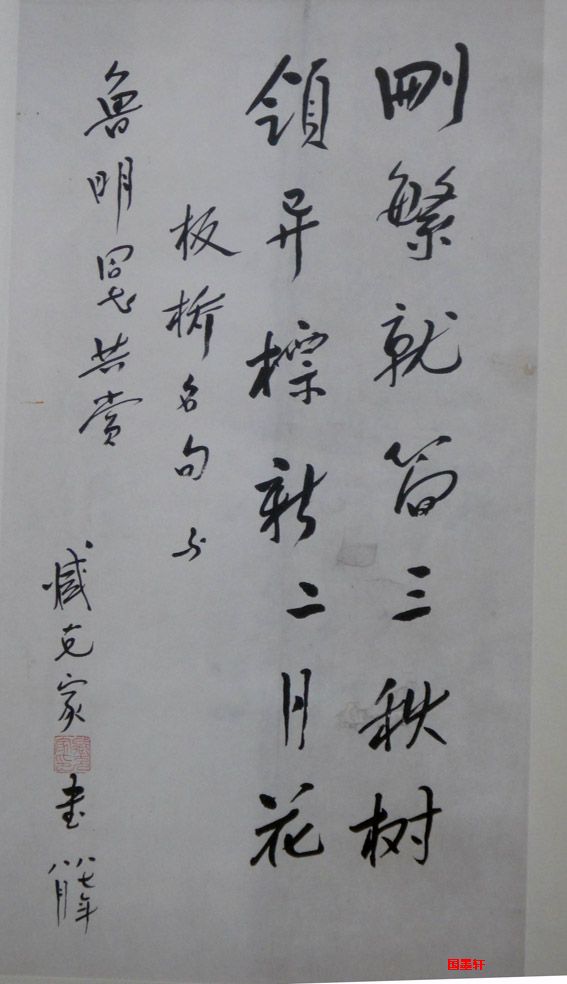 删繁就简三秋树
领异标新二月花
板桥名句 与
鲁明同志共赏
臧克家 书
八七年
八月
国墨轩